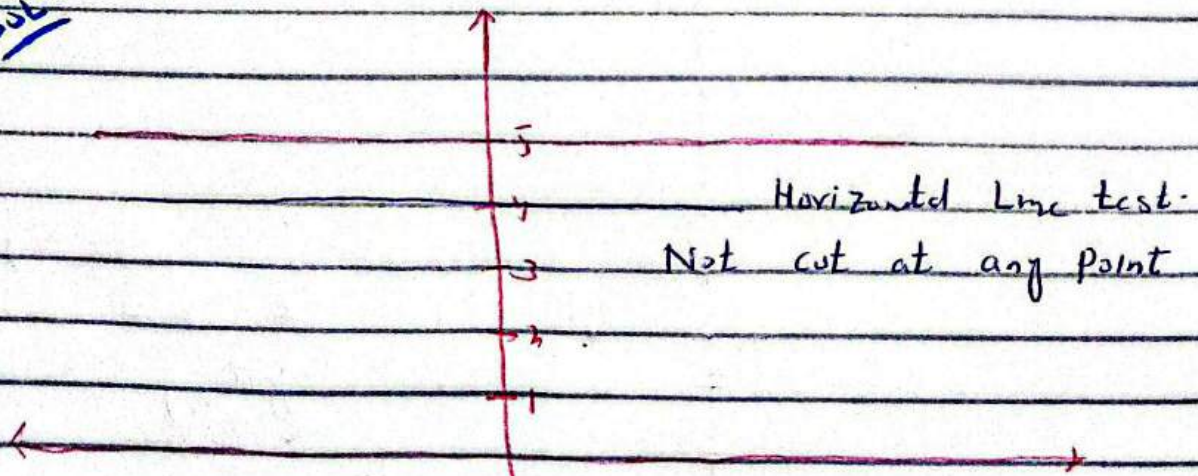 Sol
5
4 Horizontal Line test.
3 Not cut at any Point
2
1